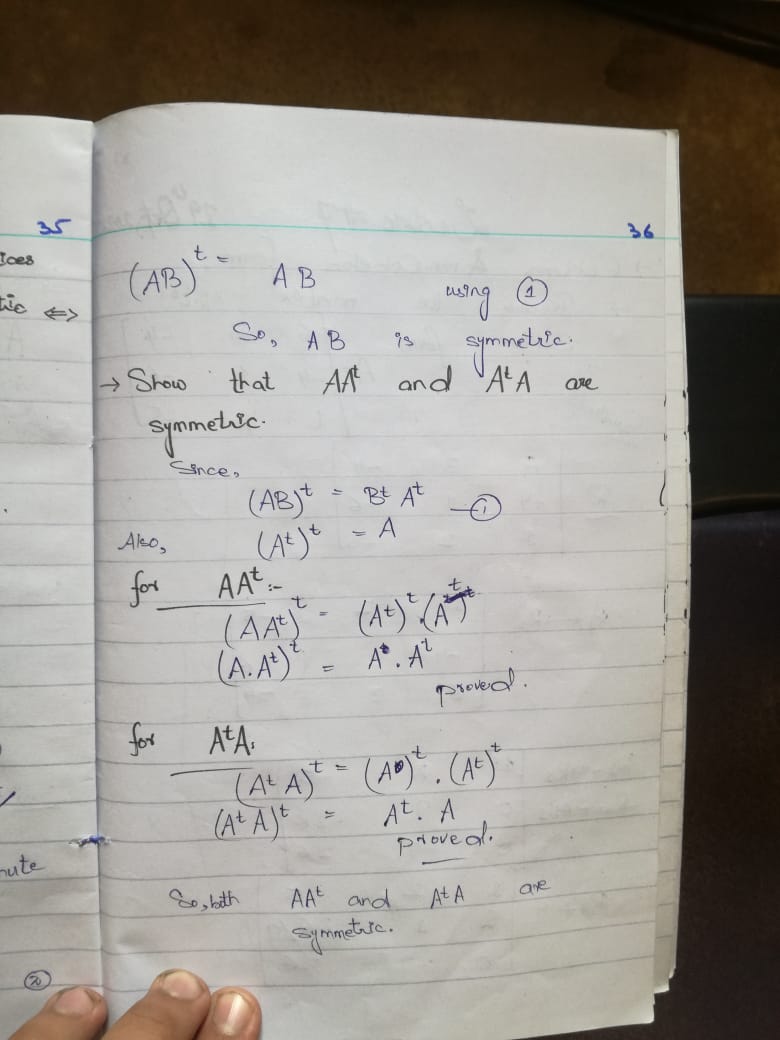 35
ices
tic <=>
nute
②
36
(AB)^t = AB using ①
So, AB is symmetric.
→ Show that AA^t and A^t A are
symmetric.
Since,
(AB)^t = B^t A^t —①
Also, (A^t)^t = A
for AA^t :-
(AA^t)^t = (A^t)^t . (A)^t
(A.A^t)^t = A . A^t
proved.
for A^t A:
(A^t A)^t = (A)^t . (A^t)^t
(A^t A)^t = A^t . A
proved.
So, both AA^t and A^t A are
symmetric.